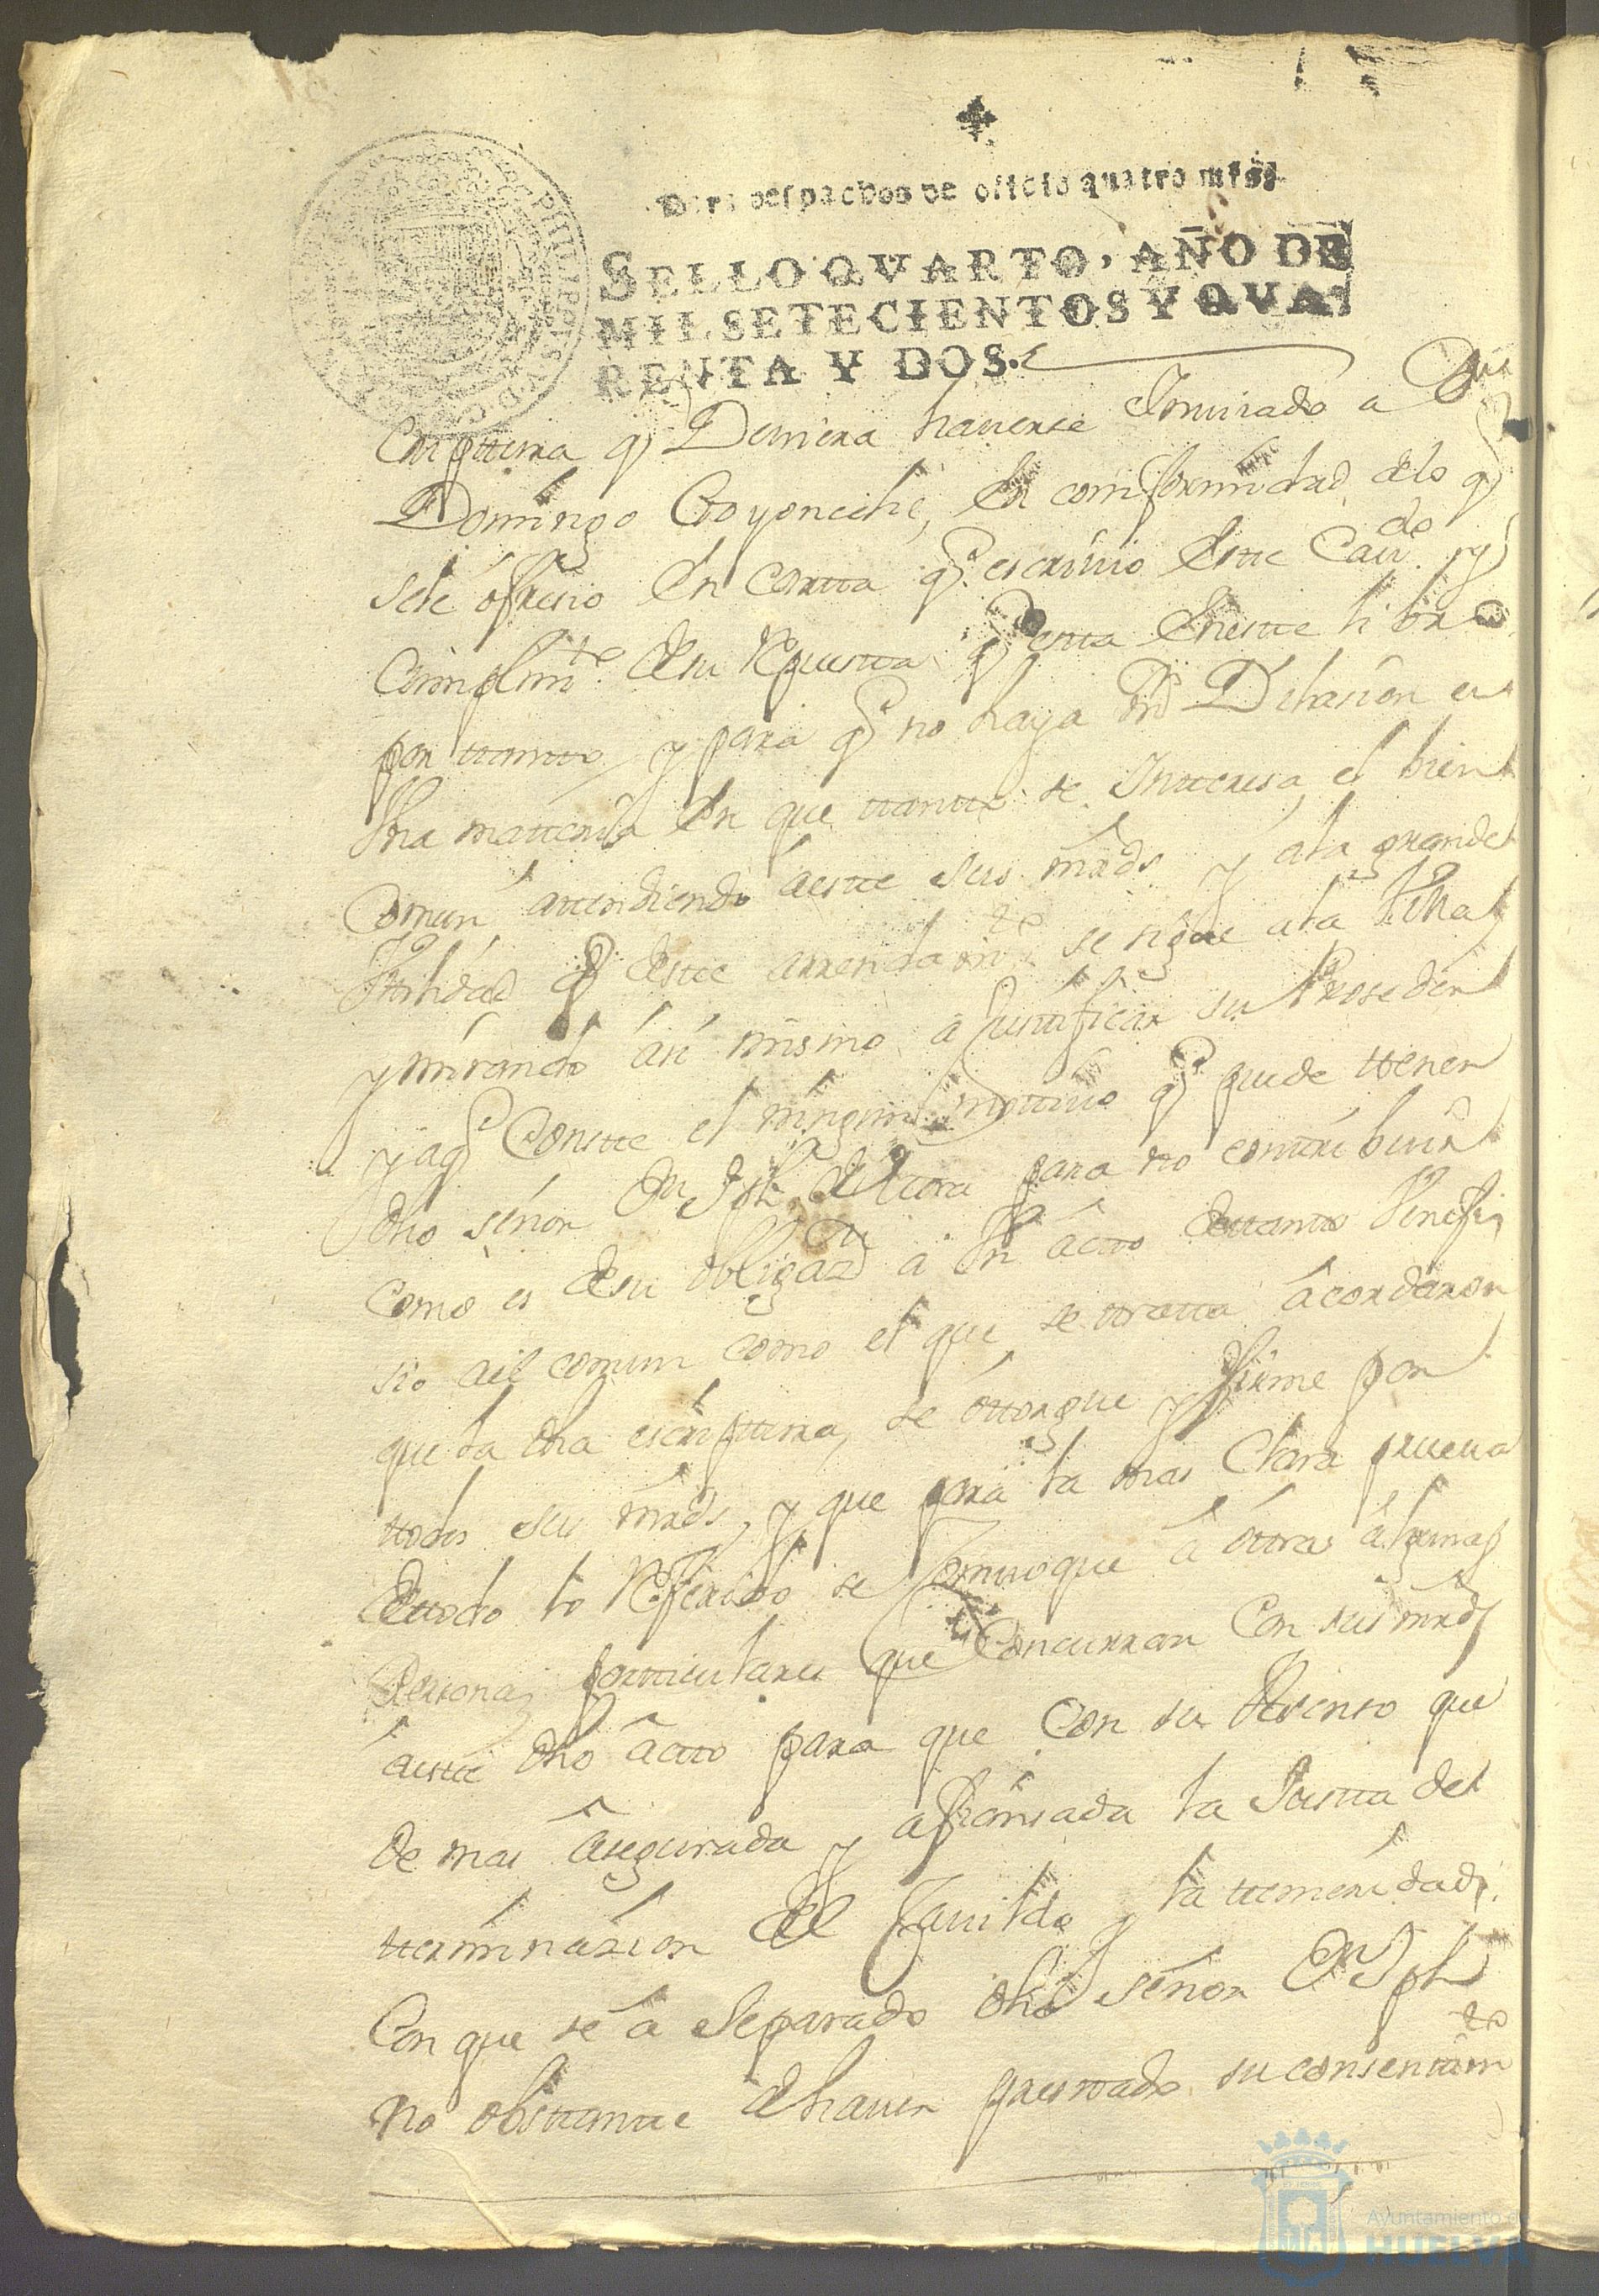 Para despachos de oficio quatro mrs.
SELLO QVARTO, AÑO DE
MIL SETECIENTOS Y QVA
RENTA Y DOS.
Escripttura q Deviera haverse Imviado a Dn
Domingo Goyoneche, En comformidad delo q
sele ofresio En Cartta q escrivio Estte Cavdo y
Cumplimto desu Rpuestta q estta Enestte libro
por ttantto, y para q no haya mas Dilasion en
Una matteria En que ttantto se Intteresa el bien
Comun attendiendo áestte sus mrds y ala grande
Utilidad q destte arrendamto se sigue ala Villa
y mirando asi mismo a Justtificar su Proseder
y aq Constte el ningun mottivo q pude ttener
dho señor Dn Jph de para no conttribuir
Como es desu obligazn a Un actto dettantto Venefi
sio ael comun como el que se ttratta acordaron
que la dha escripttura, se ottorgue y firme por
ttodos sus mrds, y que para la mas Clara prueva
Dettodo lo Referido se Comvoque a ottras algunas
Personas partticulares que Concurran Con sus mrds
aestte dho actto para que Con su Asenso que
de mas asegurada y afiansada la Justta det
tterminasion del Cavildo y la ttemeridad
Con que se a Separado dho señor Dn Jph
no obsttantte de haver presttado su consenttimto
Ayuntamiento de
HUELVA